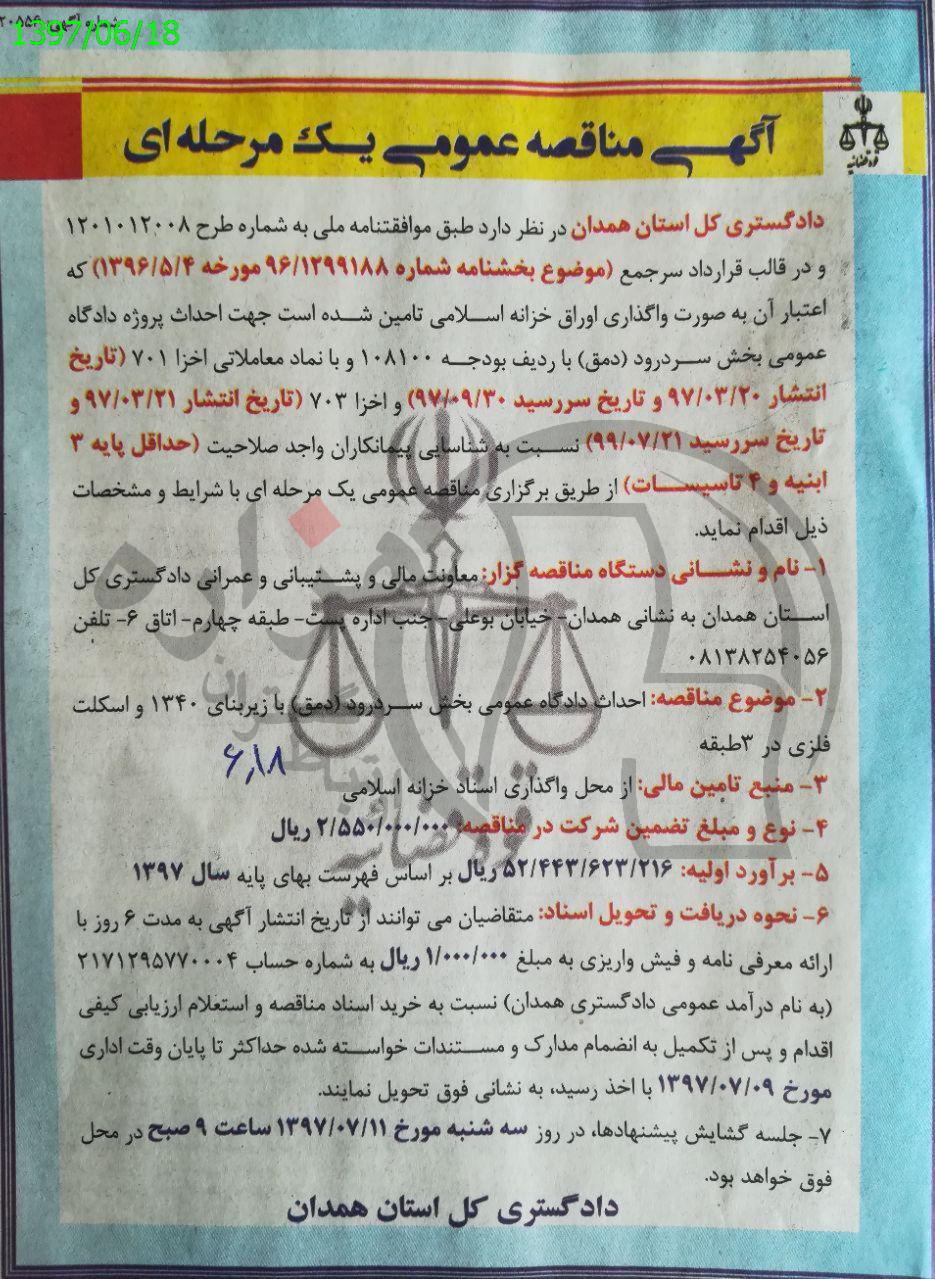 1397/06/18
آگهی مناقصه عمومی یک مرحله ای
قوه قضائیه
دادگستری کل استان همدان در نظر دارد طبق موافقتنامه ملی به شماره طرح ۱۲۰۱۰۱۲۰۰۸
و در قالب قرارداد سرجمع (موضوع بخشنامه شماره ۹۶/۱۲۹۹۱۸۸ مورخه ۱۳۹۶/۵/۴) که
اعتبار آن به صورت واگذاری اوراق خزانه اسلامی تامین شده است جهت احداث پروژه دادگاه
عمومی بخش سردرود (دمق) با ردیف بودجه ۱۰۸۱۰۰ و با نماد معاملاتی اخزا ۷۰۱ (تاریخ
انتشار ۹۷/۰۳/۲۰ و تاریخ سررسید ۹۷/۰۹/۳۰) و اخزا ۷۰۳ (تاریخ انتشار ۹۷/۰۳/۲۱ و
تاریخ سررسید ۹۹/۰۷/۲۱) نسبت به شناسایی پیمانکاران واجد صلاحیت (حداقل پایه ۳
ابنیه و ۴ تاسیسات) از طریق برگزاری مناقصه عمومی یک مرحله ای با شرایط و مشخصات
ذیل اقدام نماید.
۱- نام و نشانی دستگاه مناقصه گزار: معاونت مالی و پشتیبانی و عمرانی دادگستری کل
استان همدان به نشانی همدان- خیابان بوعلی- جنب اداره پست- طبقه چهارم- اتاق ۶- تلفن
۰۸۱۳۸۲۵۴۰۵۶
۲- موضوع مناقصه: احداث دادگاه عمومی بخش سردرود (دمق) با زیربنای ۱۳۴۰ و اسکلت
فلزی در ۳طبقه
۶,۱۸
۳- منبع تامین مالی: از محل واگذاری اسناد خزانه اسلامی
۴- نوع و مبلغ تضمین شرکت در مناقصه: ۲/۵۵۰/۰۰۰/۰۰۰ ریال
۵- برآورد اولیه: ۵۲/۴۴۳/۶۲۳/۲۱۶ ریال بر اساس فهرست بهای پایه سال ۱۳۹۷
۶- نحوه دریافت و تحویل اسناد: متقاضیان می توانند از تاریخ انتشار آگهی به مدت ۶ روز با
ارائه معرفی نامه و فیش واریزی به مبلغ ۱/۰۰۰/۰۰۰ ریال به شماره حساب ۲۱۷۱۲۹۵۷۷۰۰۰۴
(به نام درآمد عمومی دادگستری همدان) نسبت به خرید اسناد مناقصه و استعلام ارزیابی کیفی
اقدام و پس از تکمیل به انضمام مدارک و مستندات خواسته شده حداکثر تا پایان وقت اداری
مورخ ۱۳۹۷/۰۷/۰۹ با اخذ رسید، به نشانی فوق تحویل نمایند.
۷- جلسه گشایش پیشنهادها، در روز سه شنبه مورخ ۱۳۹۷/۰۷/۱۱ ساعت ۹ صبح در محل
فوق خواهد بود.
دادگستری کل استان همدان
قوه قضائیه
هزاره